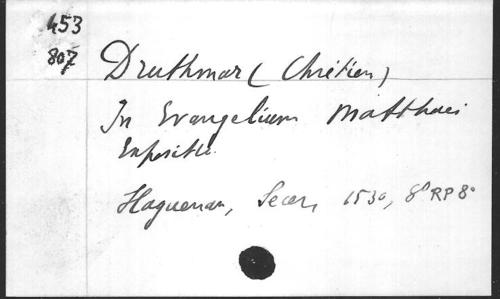 453
807
Druthmar (Chrétien)
In Evangelium Matthaei
Expositio.
Haguenau, Secer, 1530, 8° RP 8°